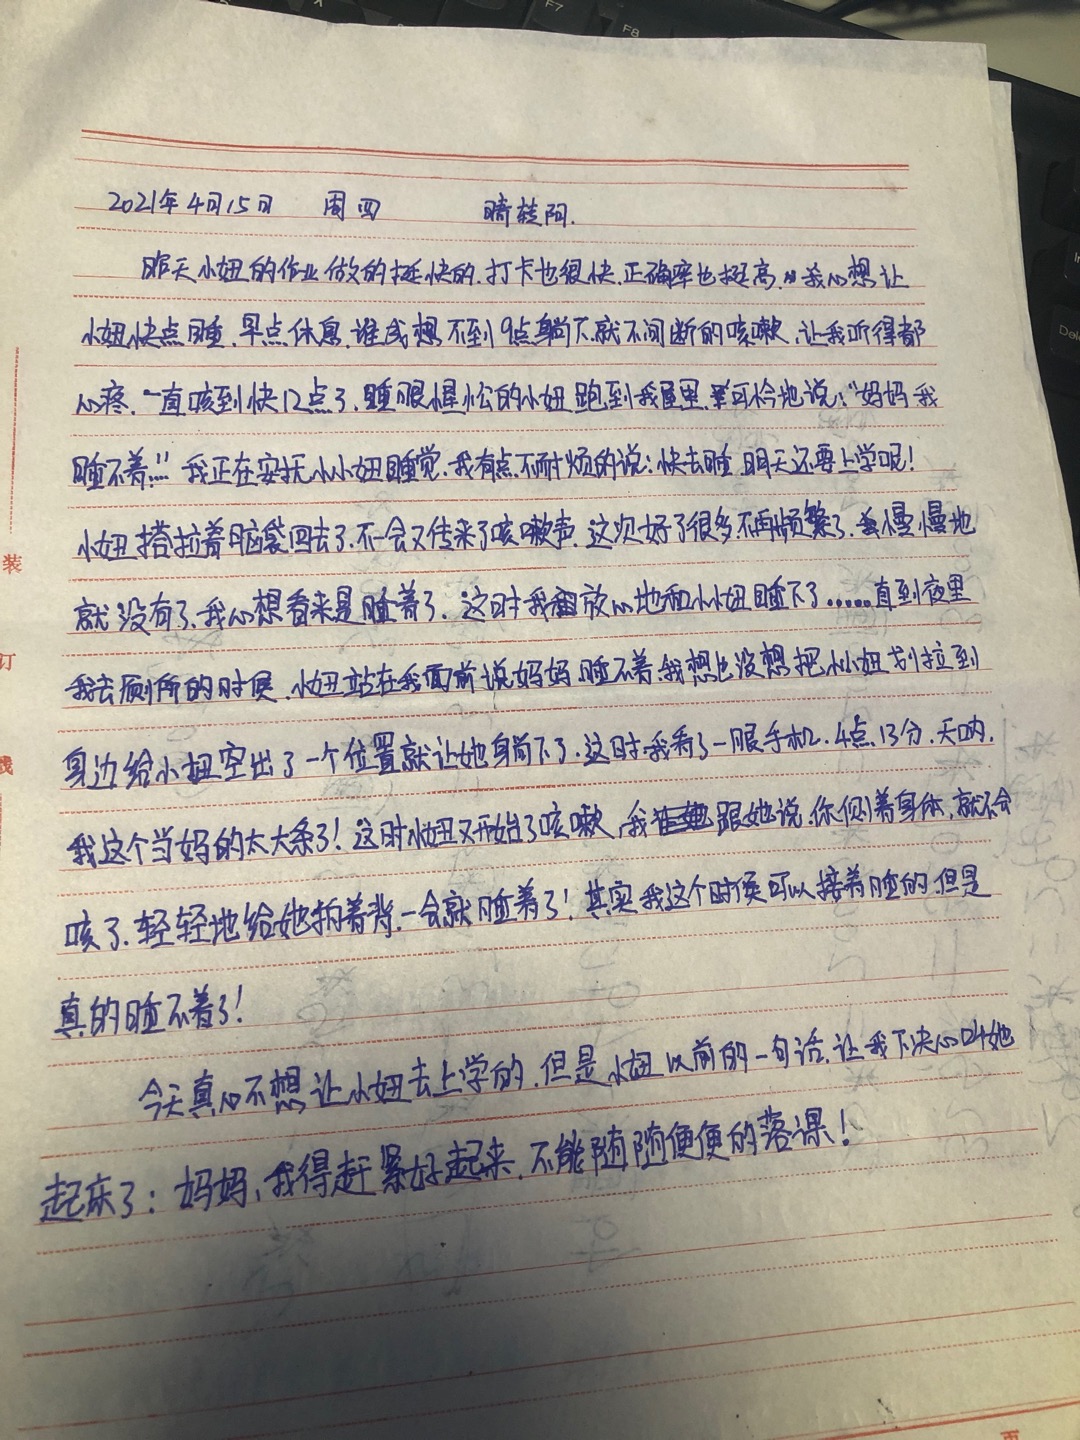 F7
F8
2021年4月15日 周四 晴转阴.
昨天小妞的作业做的挺快的.打卡也很快.正确率也挺高.我心想让
小妞快点睡.早点休息.谁成想不到9点躺下.就不间断的咳嗽.让我听得都
心疼.一直咳到快12点了.睡眼惺忪的小妞跑到我屋里.可怜地说:"妈妈我
睡不着!!!"我正在安抚小小妞睡觉.我有点不耐烦的说:快去睡.明天还要上学呢!
小妞搭拉着脑袋回去了.不一会又传来了咳嗽声.这次好了很多.不再频繁了.慢慢地
就没有了.我心想看来是睡着了.这时我放心地和小小妞睡下了......直到夜里
我去厕所的时候.小妞站在我面前说妈妈睡不着.我想也没想把小小妞划拉到
身边给小妞空出了一个位置就让她躺下了.这时我看了一眼手机.4点13分.天呐.
我这个当妈的太大条了!这时小妞又开始了咳嗽.我跟她说.你侧着身体.就不会
咳了.轻轻地给她拍着背.一会就睡着了!其实我这个时候可以接着睡的.但是
真的睡不着了!
今天真心不想让小妞去上学的.但是小妞以前的一句话.让我下决心叫她
起床了:妈妈,我得赶紧好起来.不能随随便便的落课!
装
订
线
页